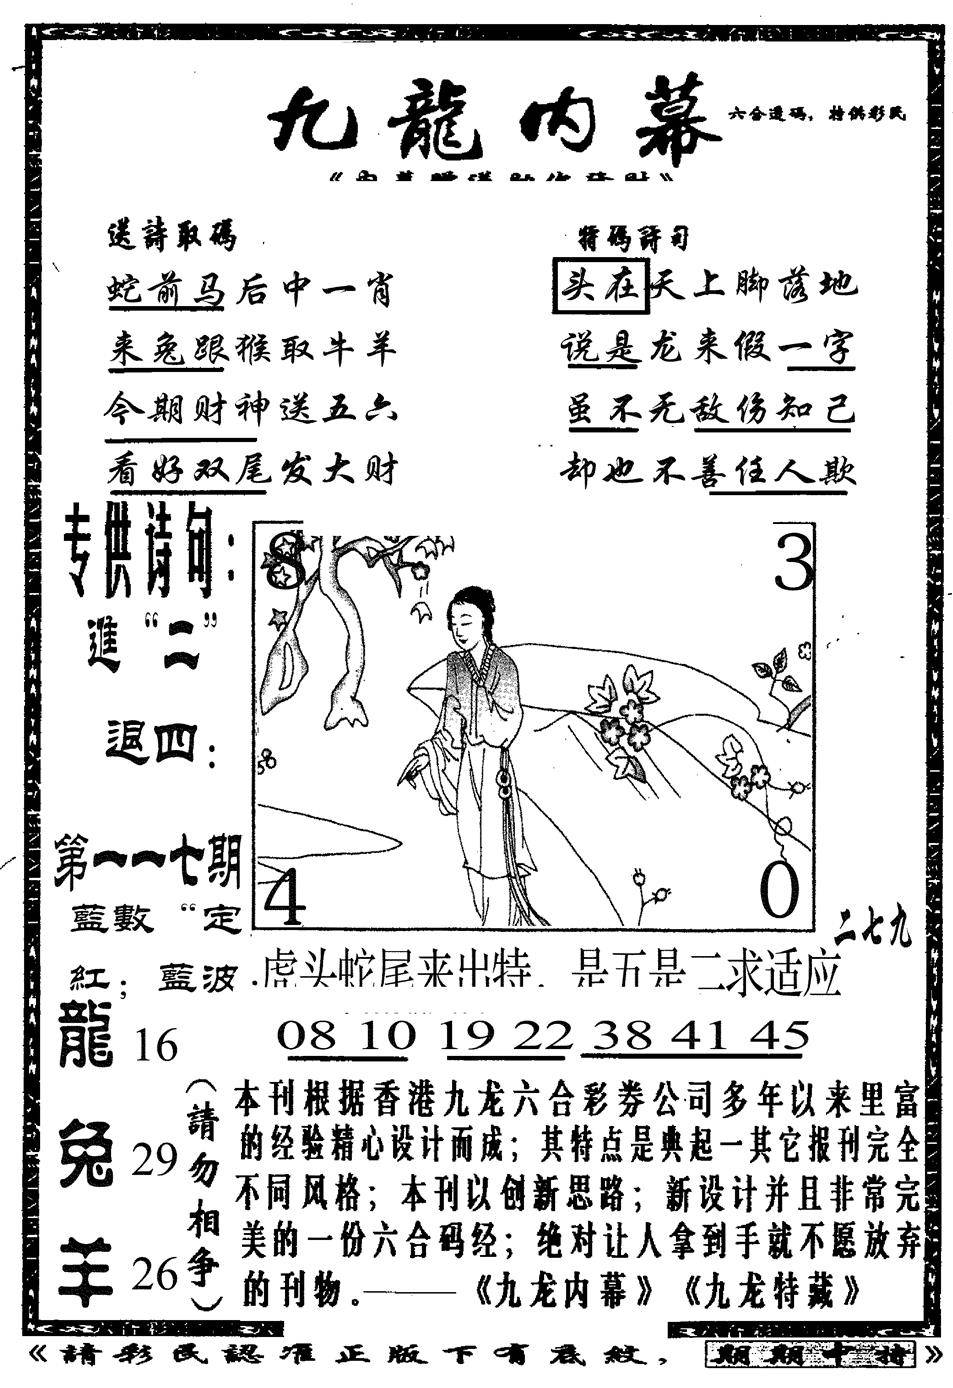 九龍内幕
六合透码，特供彩民
送詩取碼
蛇前马后中一肖
来兔跟猴取牛羊
今期财神送五六
看好双尾发大财
特碼詩司
头在天上脚落地
说是龙来假一字
虽不无敌伤知己
却也不善任人欺
专供诗句：
進“二”
退四：
第一一七期
藍數“定
紅；藍波
龍 16
兔 29
羊 26
8 3
4 0
58
二七九
虎头蛇尾来出特．是五是二求适应
08 10 19 22 38 41 45
（請勿相争）
本刊根据香港九龙六合彩券公司多年以来里富
的经验精心设计而成；其特点是典起一其它报刊完全
不同风格；本刊以创新思路；新设计并且非常完
美的一份六合码经；绝对让人拿到手就不愿放弃
的刊物．——《九龙内幕》《九龙特藏》
《請彩民認准正版下有底紋，期期中特》